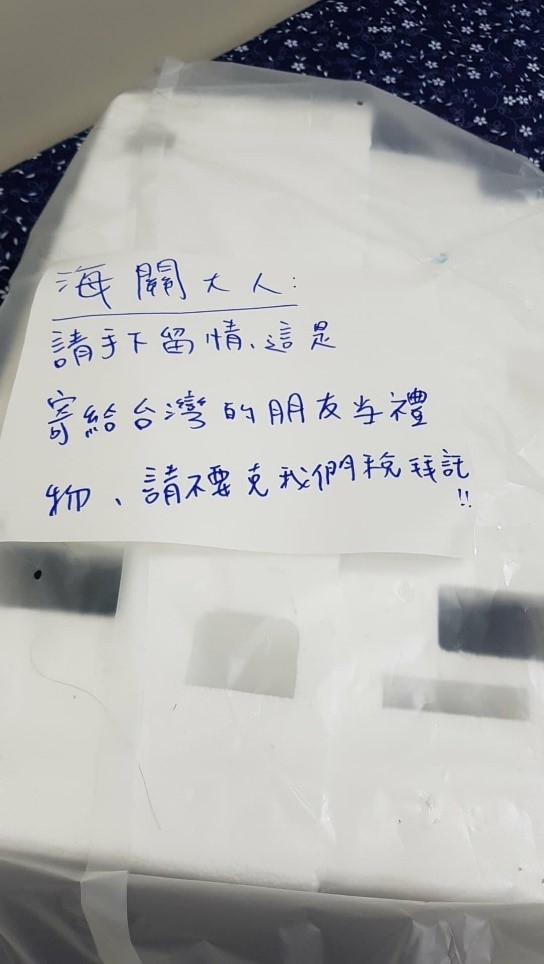 海關大人：
請手下留情、這是
寄給台灣的朋友当禮
物、請不要克我們稅拜託
!!